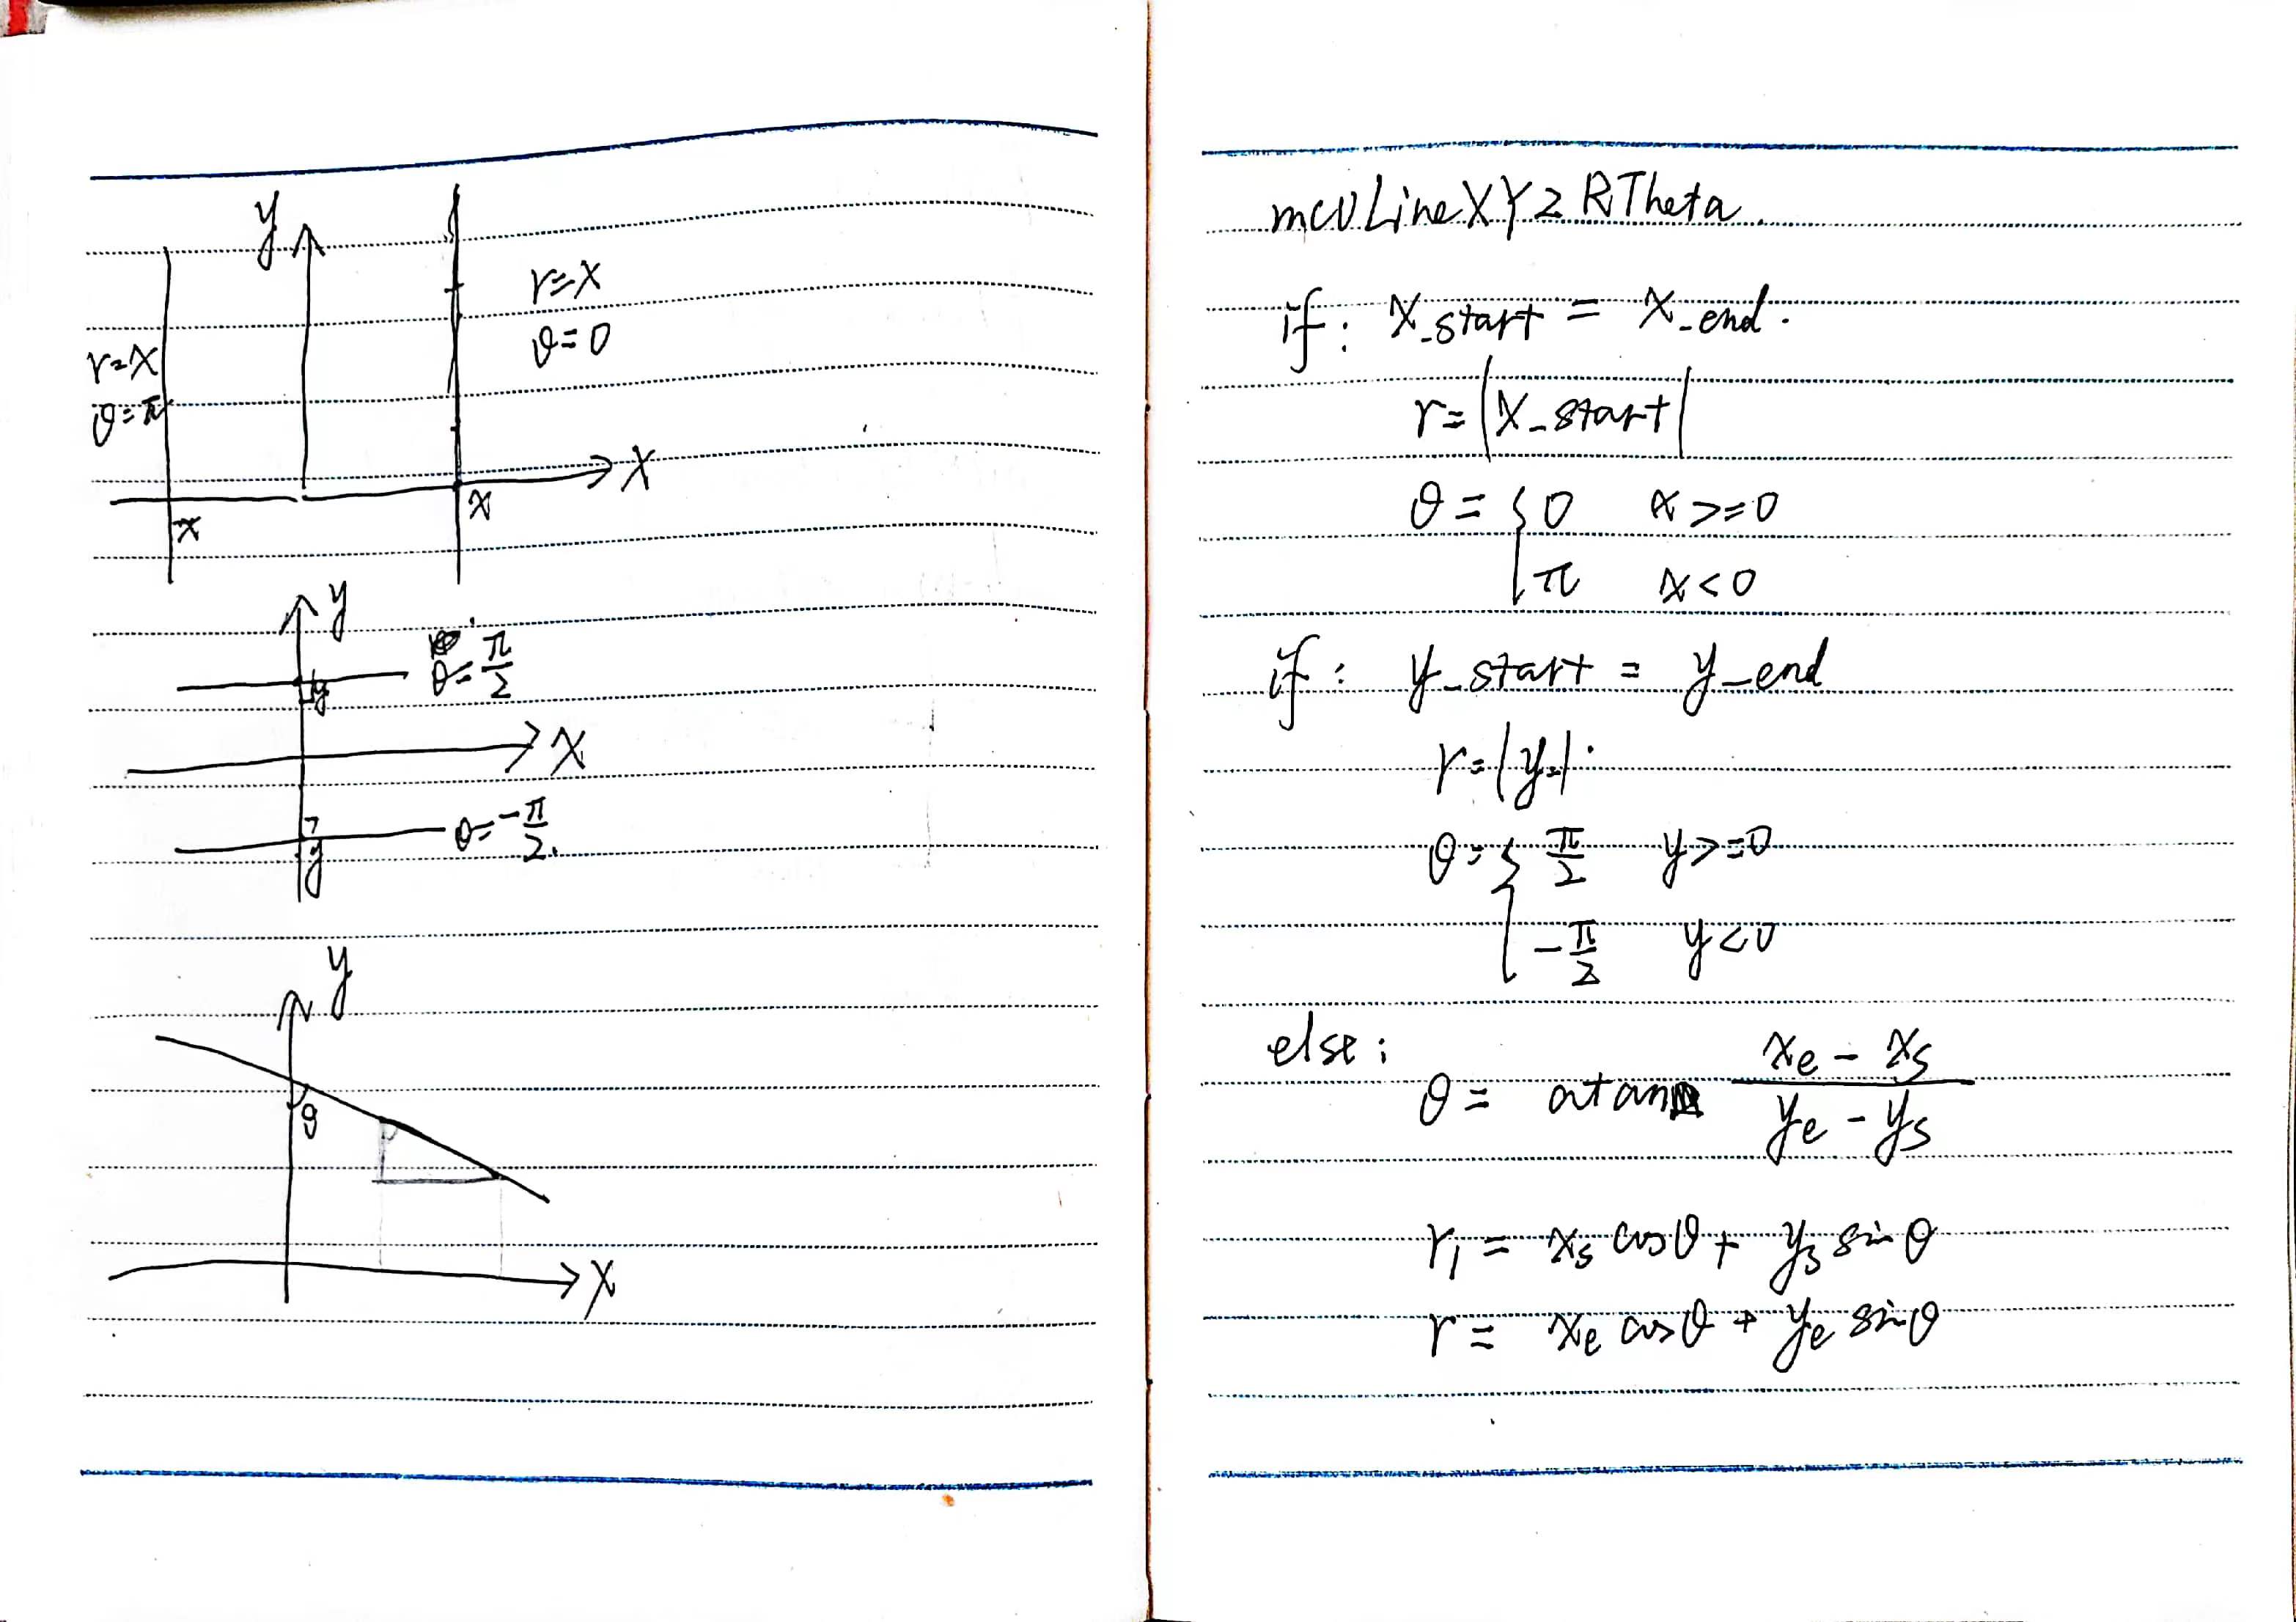 y
r=x
θ=0
r=x
θ=π
x
x
-x
y
θ=π/2
y
x
θ=-π/2.
y
y
θ
x
mcvLineXY2RTheta.
if: x_start = x_end.
r=|x_start|
θ= { 0 x>=0
π x<0
if: y_start = y_end
r=|y|.
θ= { π/2 y>=0
-π/2 y<0
else:
θ= atan (xe - xs)/(ye - ys)
r₁ = xs cosθ + ys sinθ
r = xe cosθ + ye sinθ